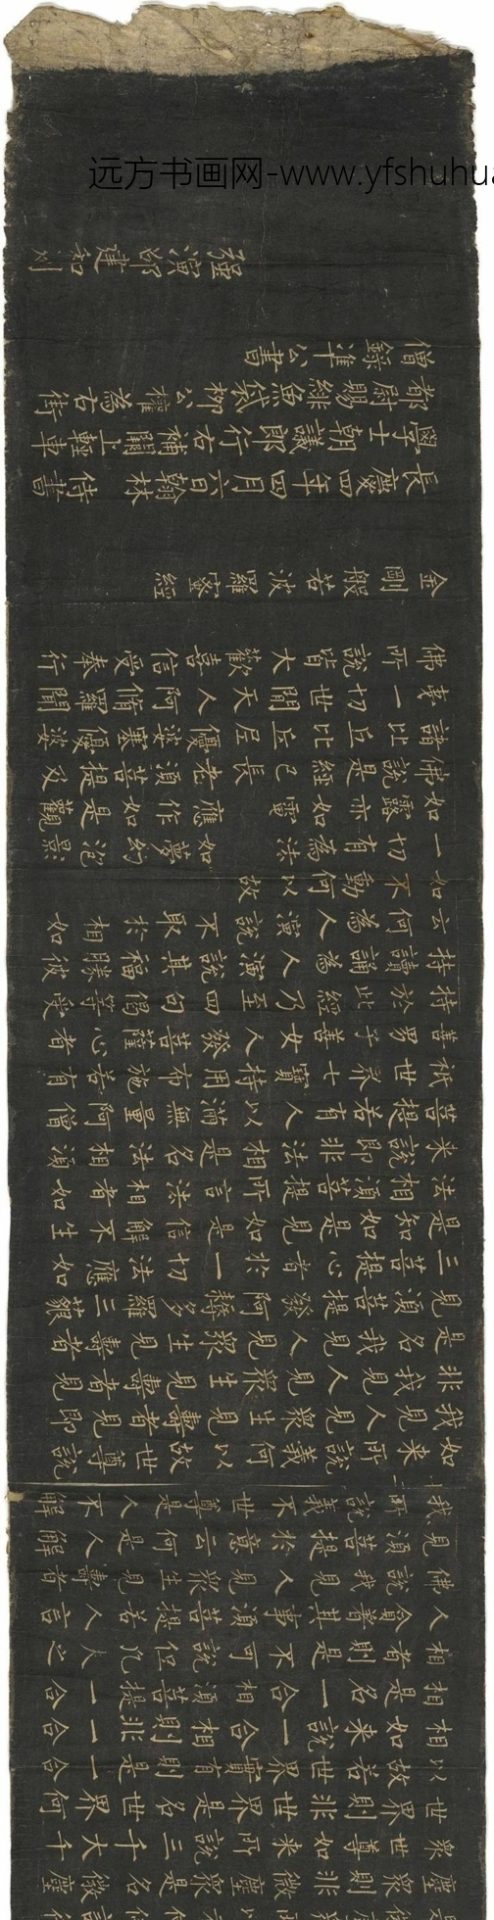 远方书画网-www.yfshuhua
塵眾則非微塵眾是名微塵
眾世尊如來所說三千大千
世界則非世界是名世界何
以故若世界實有則是一合
相如來說一合相則非一合
相是名一合相須菩提一合
相者則是不可說但凡夫之
人貪著其事須菩提若人言
佛說我見人見眾生見壽者
見須菩提於意云何是人解
我所說義不世尊是人不解
如來所說義何以故世尊說
我見人見眾生見壽者見即
非我見人見眾生見壽者見
是名我見人見眾生見壽者
見須菩提發阿耨多羅三藐
三菩提心者於一切法應如
是知如是見如是信解不生
法相須菩提所言法相者如
來說即非法相是名法相須
菩提若有人以滿無量阿僧
祇世界七寶持用布施若有
善男子善女人發菩薩心者
持於此經乃至四句偈等受
持讀誦為人演說其福勝彼
云何為人演說不取於相如
如不動何以故
一切有為法如夢幻泡影
如露亦如電應作如是觀
佛說是經已長老須菩提及
諸比丘比丘尼優婆塞優婆
夷一切世間天人阿脩羅聞
佛所說皆大歡喜信受奉行
金剛般若波羅蜜經
長慶四年四月六日翰林侍書
學士朝議郎行右補闕上輕車
都尉賜緋魚袋柳公權為右街
僧錄準公書
強演邵建和刻